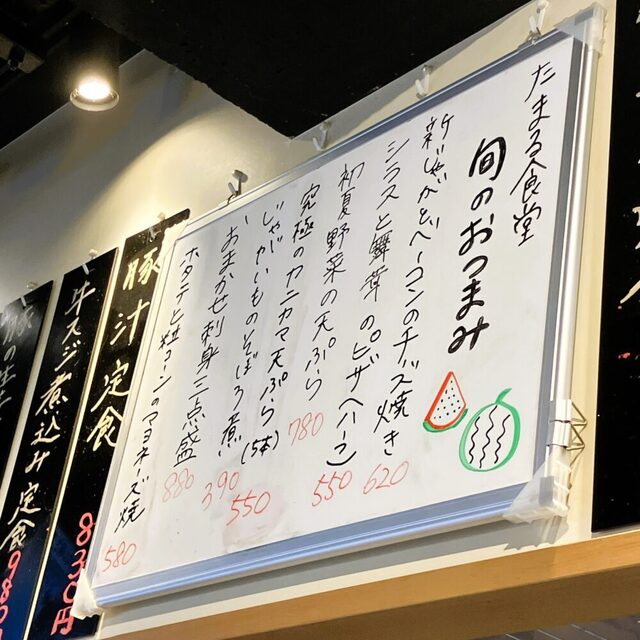 たまる食堂
旬のおつまみ
新じゃがとベーコンのチーズ焼き 620
シラスと舞茸のピザ(ハーフ) 550
初夏野菜の天ぷら 780
究極のカニカマ天ぷら(5本) 550
じゃがいものそぼろ煮 390
おまかせ刺身三点盛 880
ホタテと粒コーンのマヨネーズ焼 580
豚汁定食 830円
牛スジ煮込み定食 980
豚の生